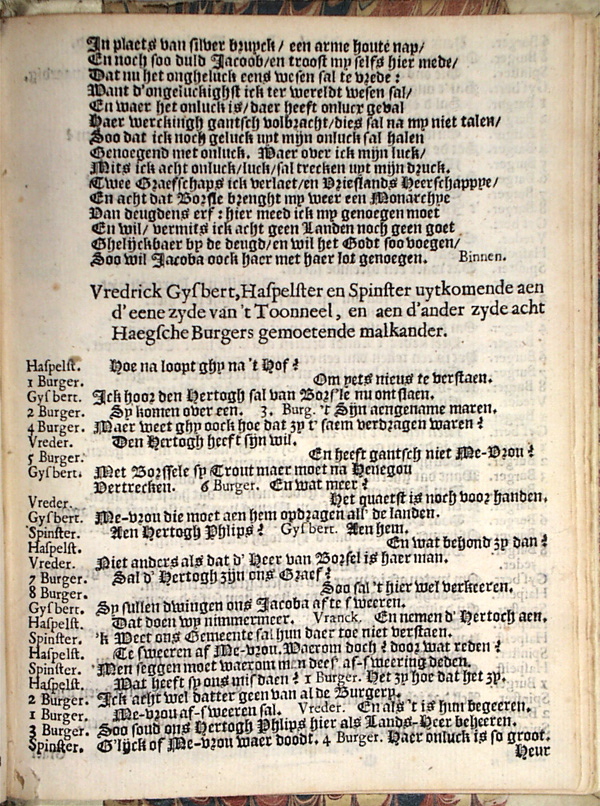 In plaets van silver bruyck / een arme houte nap /
En noch soo duld Jacoob / en troost my selfs hier mede /
Dat nu het ongheluck eens wesen sal te vrede :
Want d'ongeluckighst ick ter wereldt wesen sal /
En waer het onluck is / daer heeft onlucx geval
Haer werckingh gantsch volbracht / dies sal na my niet talen /
Soo dat ick noch geluck uyt mijn onluck sal halen
Genoegend met onluck. Waer over ick mijn luck /
Mits ick acht onluck / luck / sal trecken uyt mijn druck.
Twee Graefschaps ick verlaet / en Vrieslands Heerschappye /
En acht dat Borssle brenght my weer een Monarchye
Van deugdens erf : hier meed ick my genoegen moet
En wil / vermits ick acht geen Landen noch geen goet
Ghelijckbaer by de deugd / en wil het Godt soo voegen /
Soo wil Jacoba oock haer met haer lot genoegen. Binnen.
Vredrick Gysbert, Haspelster en Spinster uytkomende aen
d'eene zyde van 't Tooneel, en aen d'ander zyde acht
Haegsche Burgers gemoetende malkander.
Haspelst. Hoe na loopt ghy na 't Hof ?
1 Burger. Om yets nieus te verstaen.
Gysbert. Ick hoor den Hertogh sal van Bors'le nu ontslaen.
2 Burger. Sy komen over een. 3. Burg. 't Sijn aengename maren.
4 Burger. Maer weet ghy oock hoe dat zy t' saem verdragen waren ?
Vreder. Den Hertogh heeft sijn wil.
5 Burger. En heeft gantsch niet Me-Vrou ?
Gysbert. Met Borssele sy Trout maer moet na Henegou
Vertrecken. 6 Burger. En wat meer ?
Vreder. Het quaetst is noch voor handen.
Gysbert. Me-vrou die moet aen hem opdragen all' de landen.
Spinster. Aen Hertogh Phlips ? Gysbert. Aen hem.
Haspelst. En wat behond zy dan ?
Vreder. Niet anders als dat d' Heer van Borsel is haer man.
7 Burger. Sal d' Hertogh zijn ons Graef ?
8 Burger. Soo sal 't hier wel verkeeren.
Gysbert. Sy sullen dwingen ons Jacoba af te sweeren.
Haspelst. Dat doen wy nimmermeer. Vranck. En nemen d' Hertoch aen.
Spinster. 'k Weet ons Gemeente sal hun daer toe niet verstaen.
Haspelst. Te sweeren af Me-vrou, Waerom doch ? door wat reden ?
Spinster. Men seggen moet waerom m n dees' af-sweering deden.
Haspelst. Wat heeft sy ons misdaen ? 1 Burger. Het zy hoe dat het zy.
2 Burger. Ick acht wel datter geen van al de Burgery.
1 Burger. Me-vrou af-sweeren sal. Vreder. En als 't is hun begeeren.
3 Burger. Soo soud ons Hertogh Phlips hier als Lands-Heer beheeren.
Spinster. G'lijck of Me-vrou waer doodt. 4 Burger. Haer onluck is so groot.
Heur